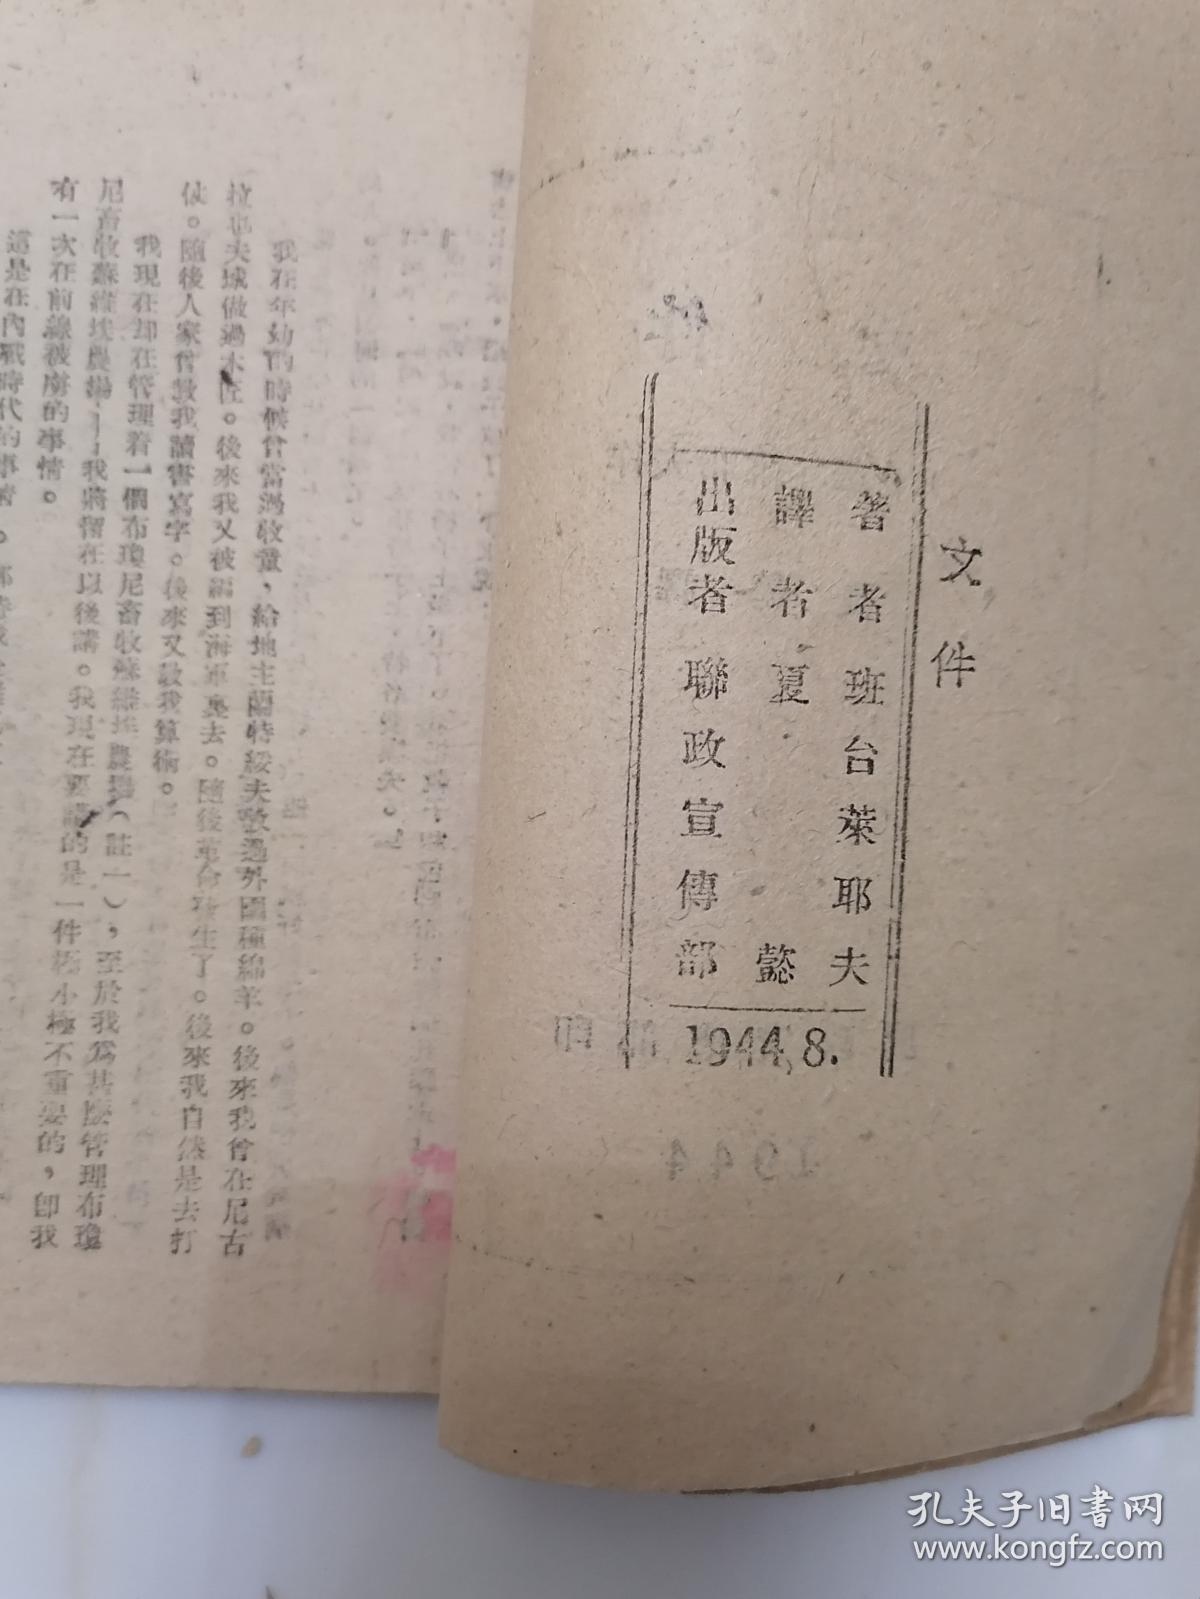 文件
著者班台萊耶夫
譯者夏懿
出版者聯政宣傳部
1944,8.
1944
我在年幼的時候曾當過牧童，給地主蘭特綏夫牧過外國種綿羊。後來我曾在尼古
拉也夫城做過木匠。後來我又被編到海軍裏去。隨後革命發生了。後來我自然是去打
仗。隨後人家曾教我讀書寫字。後來又教我算術。
我現在却在管理着一個布瓊尼畜牧蘇維埃農場（註一），至於我爲甚麼管理布瓊
尼畜牧蘇維埃農場——我將留在以後講。我現在要講的是一件極小極不重要的，卽我
有一次在前線被虜的事情。
這是在內戰時代的事情。
孔夫子旧书网
www.kongfz.com